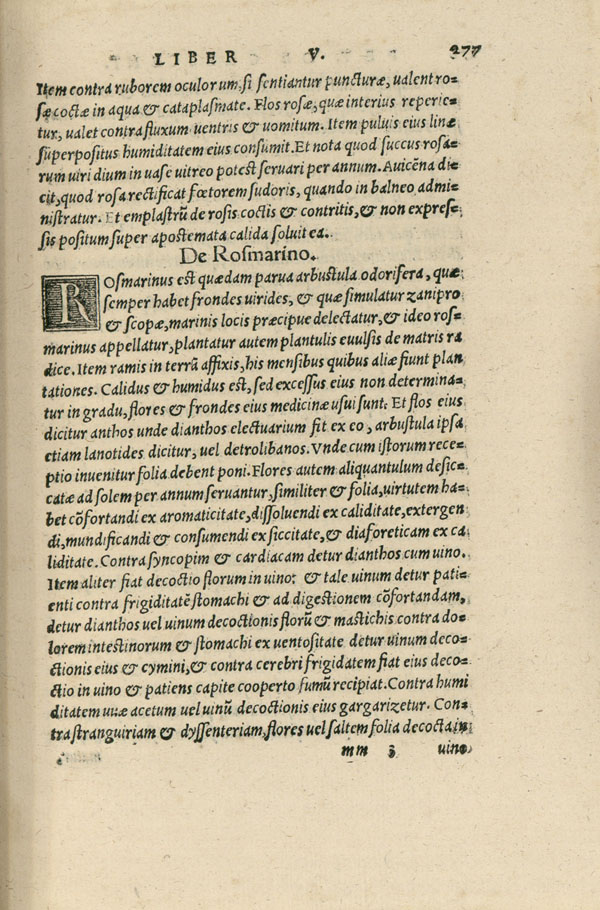 LIBER V. 277
Item contra ruborem oculorum, si sentiantur puncturæ, ualent ro-
sæ coctæ in aqua & cataplasmate. Flos rosæ, quæ interius reperie-
tur, ualet contra fluxum uentris & uomitum. Item puluis eius line
superpositus humiditatem eius consumit. Et nota quod succus rosa-
rum uiridium in uase uitreo potest seruari per annum. Auicēna di-
cit, quod rosa rectificat fœtorem sudoris, quando in balneo admi-
nistratur. Et emplastrū de rosis coctis & contritis, & non expres-
sis positum super apostemata calida soluit ea.
De Rosmarino.
ROsmarinus est quædam parua arbustula odorifera, quæ
semper habet frondes uirides, & quæ simulatur zanipro
& scopæ, marinis locis præcipue delectatur, & ideo ros-
marinus appellatur, plantatur autem plantulis euulsis de matris ra
dice. Item ramis in terrā affixis, his mensibus quibus aliæ fiunt plan
tationes. Calidus & humidus est, sed excessus eius non determina-
tur in gradu, flores & frondes eius medicinæ usui sunt. Et flos eius
dicitur anthos unde dianthos electuarium fit ex eo, arbustula ipsa
etiam lanotides dicitur, uel detrolibanos. Vnde cum istorum rece-
ptio inuenitur folia debent poni. Flores autem aliquantulum desic-
catæ ad solem per annum seruantur, similiter & folia, uirtutem ha-
bet cōfortandi ex aromaticitate, dissoluendi ex caliditate, extergen
di, mundificandi & consumendi ex siccitate, & diaforeticam ex ca
liditate. Contra syncopim & cardiacam detur dianthos cum uino.
Item aliter fiat decoctio florum in uino: & tale uinum detur pati-
enti contra frigiditatē stomachi & ad digestionem cōfortandam,
detur dianthos uel uinum decoctionis florū & mastichis contra do-
lorem intestinorum & stomachi ex uentositate detur uinum deco-
ctionis eius & cymini, & contra cerebri frigidatem fiat eius deco-
ctio in uino & patiens capite cooperto fumū recipiat. Contra humi
ditatem uuæ acetum uel uinū decoctionis eius gargarizetur. Con-
tra stranguiriam & dyssenteriam, flores uel saltem folia decocta in
mm 3 uino